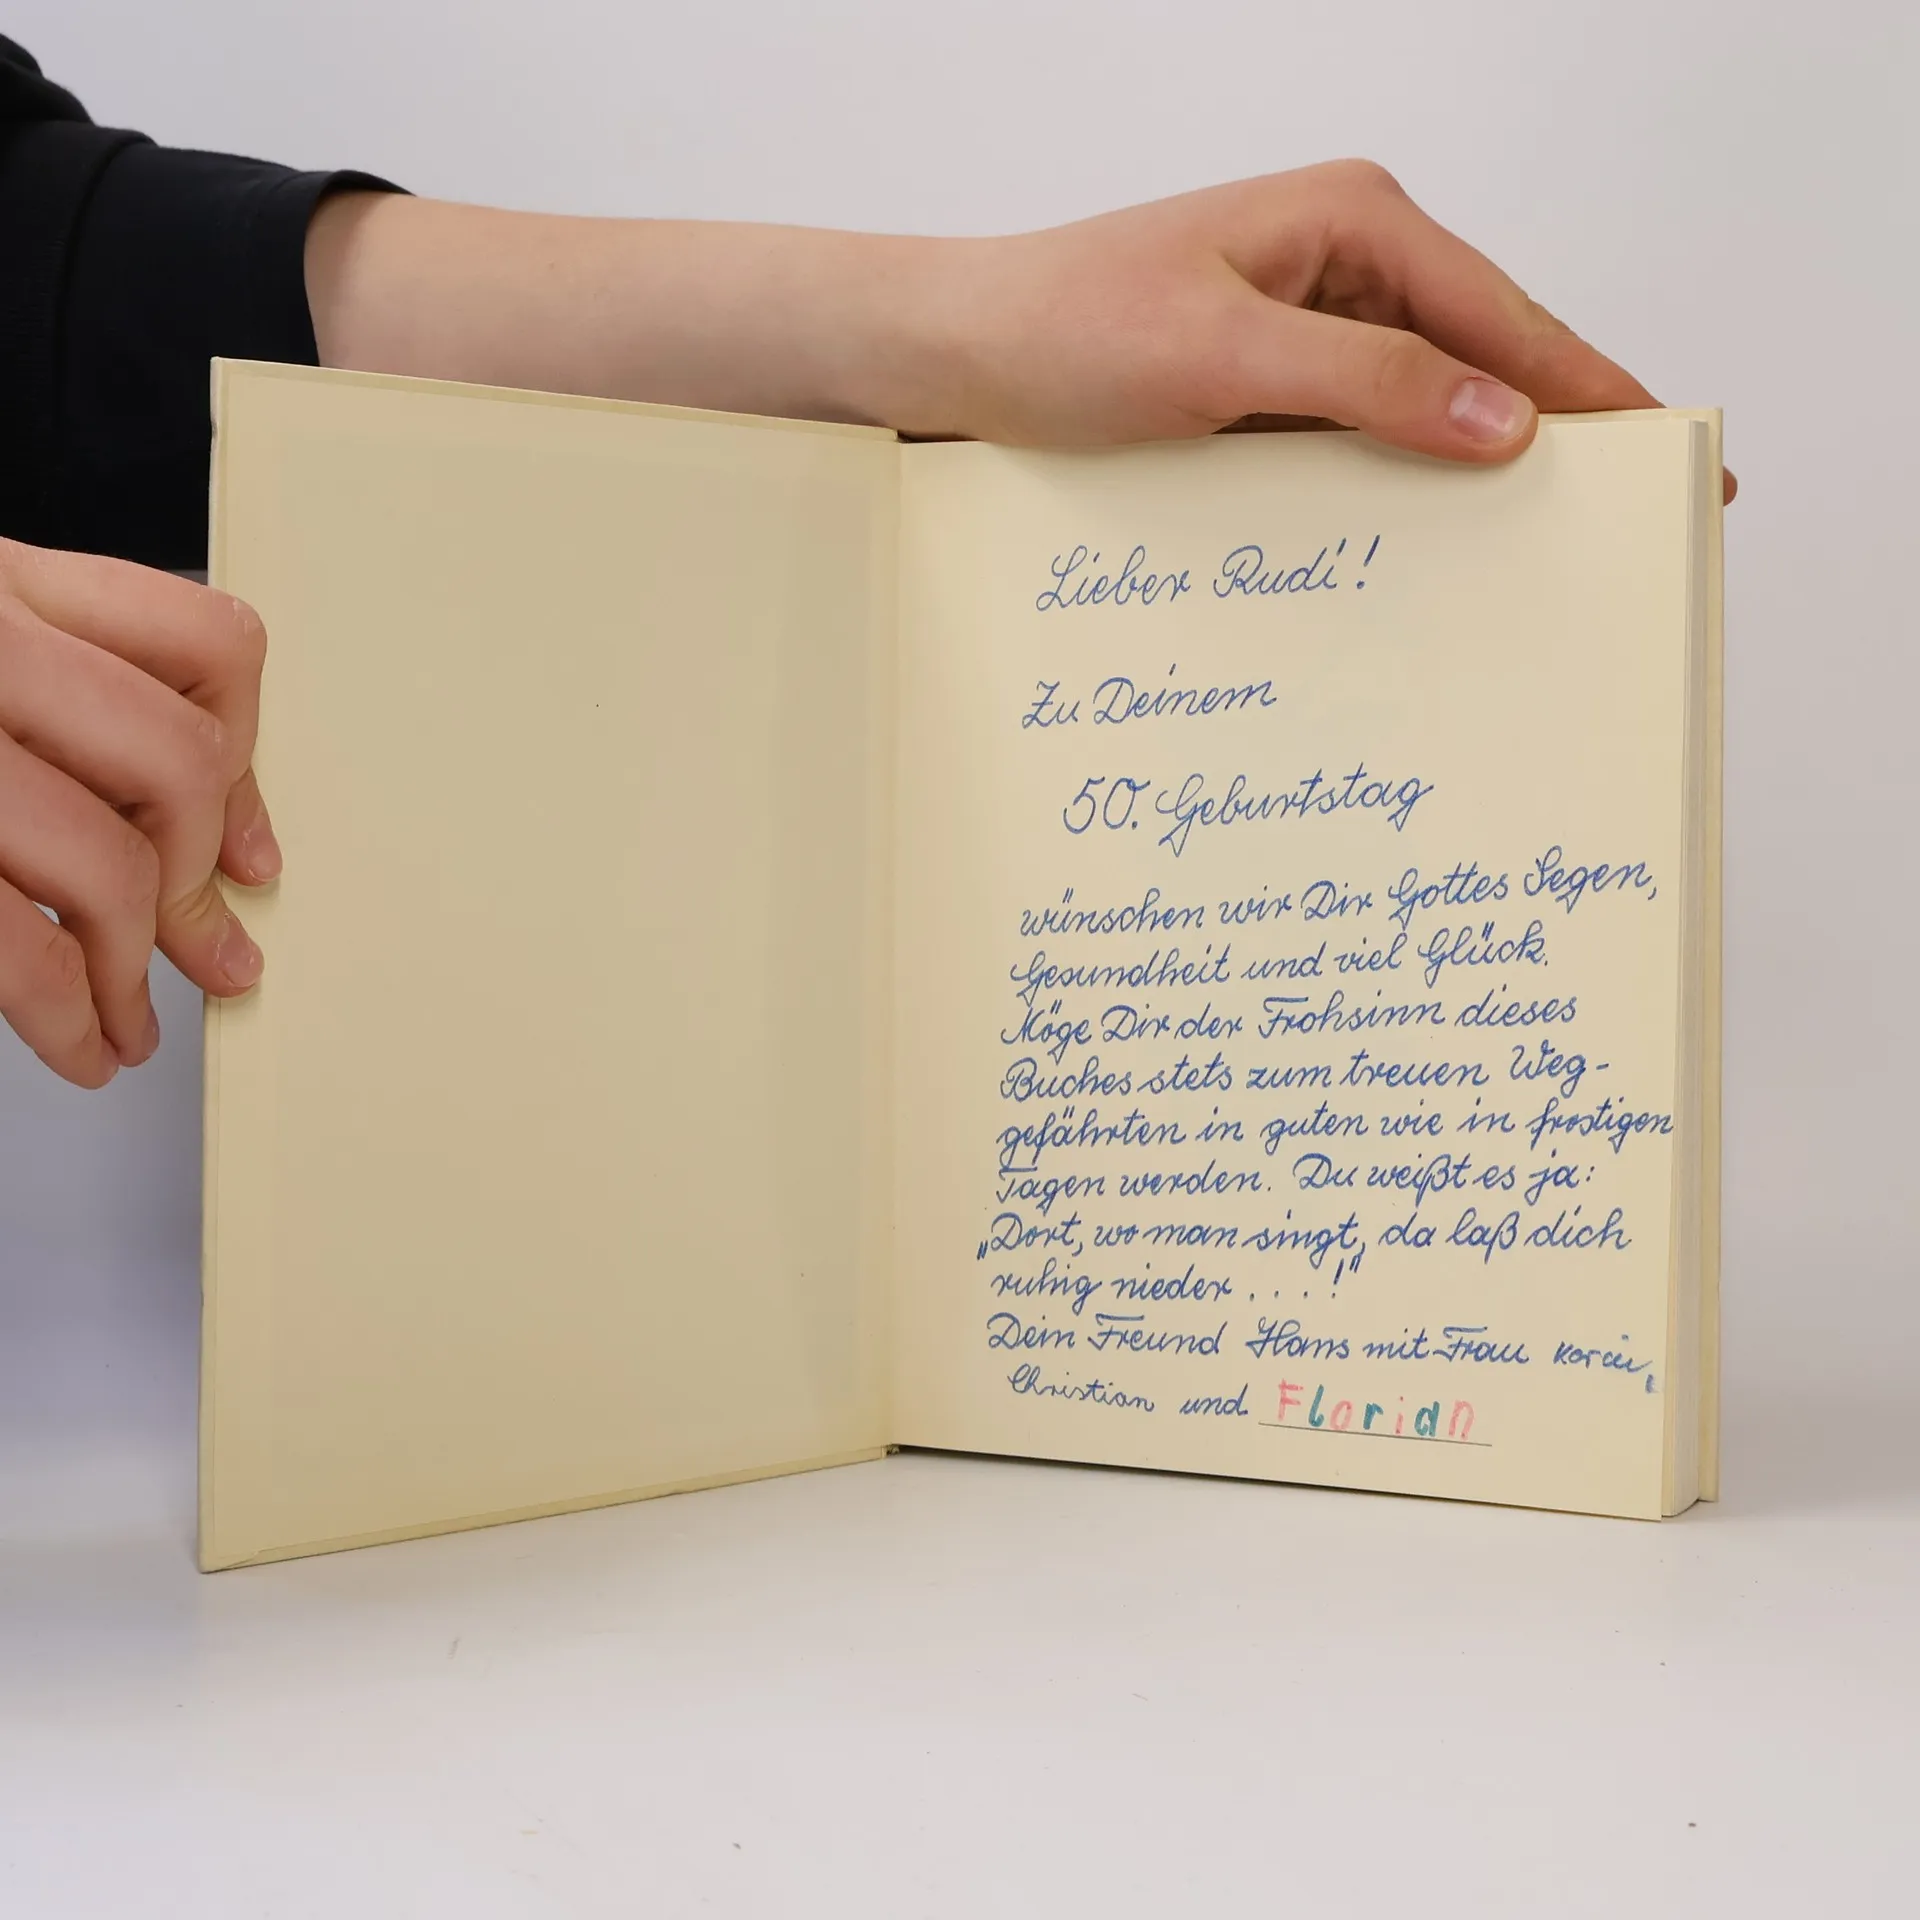 Lieber Rudi!
Zu Deinem
50. Geburtstag
wünschen wir Dir Gottes Segen,
Gesundheit und viel Glück.
Möge Dir der Frohsinn dieses
Buches stets zum treuen Weg-
gefährten in guten wie in frostigen
Tagen werden. Du weißt es ja:
„Dort, wo man singt, da laß dich
ruhig nieder . . . . !"
Dein Freund Hans mit Frau
Christian und Florian